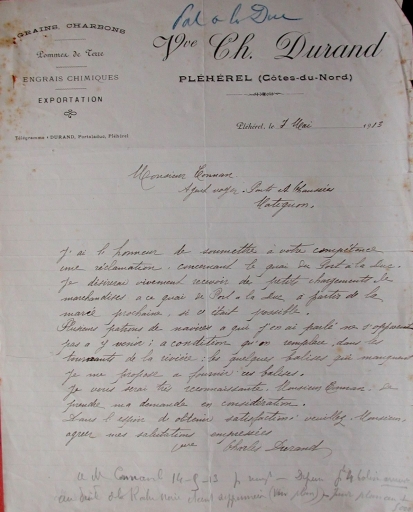 Port à la Duc
GRAINS, CHARBONS
Pommes de Terre
ENGRAIS CHIMIQUES
EXPORTATION
Télégrammes : DURAND, Portaladuc, Pléhérel
Vve Ch. Durand
PLÉHÉREL (Côtes-du-Nord)
Pléhérel, le 7 Mai 1913
Monsieur Connan
Agent voyer. Ponts et Chaussées
Matignon.
J'ai l'honneur de soumettre à votre compétance
une réclamation concernant le quai du Port à la Duc.
Je désirerai vivement recevoir de petits chargements de
marchandises a ce quai de Port-a la Duc a partir de la
marée prochaine, si c'était possible.
Plusieurs patrons de navires a qui j'en ai parlé ne s'opposent
pas a y venir; a condition qu'on remplace dans les
tournants de la rivière: les quelques balises qui manquent
Je me propose a fournir ces balises.
Je vous serai très reconnaissante, Monsieur Connan: de
prendre ma demande en considération.
Dans l'espoir d'obtenir satisfaction: veuillez, Monsieur,
agréer mes salutations empressées
Charles Durand
a M. Connan 14-5-13